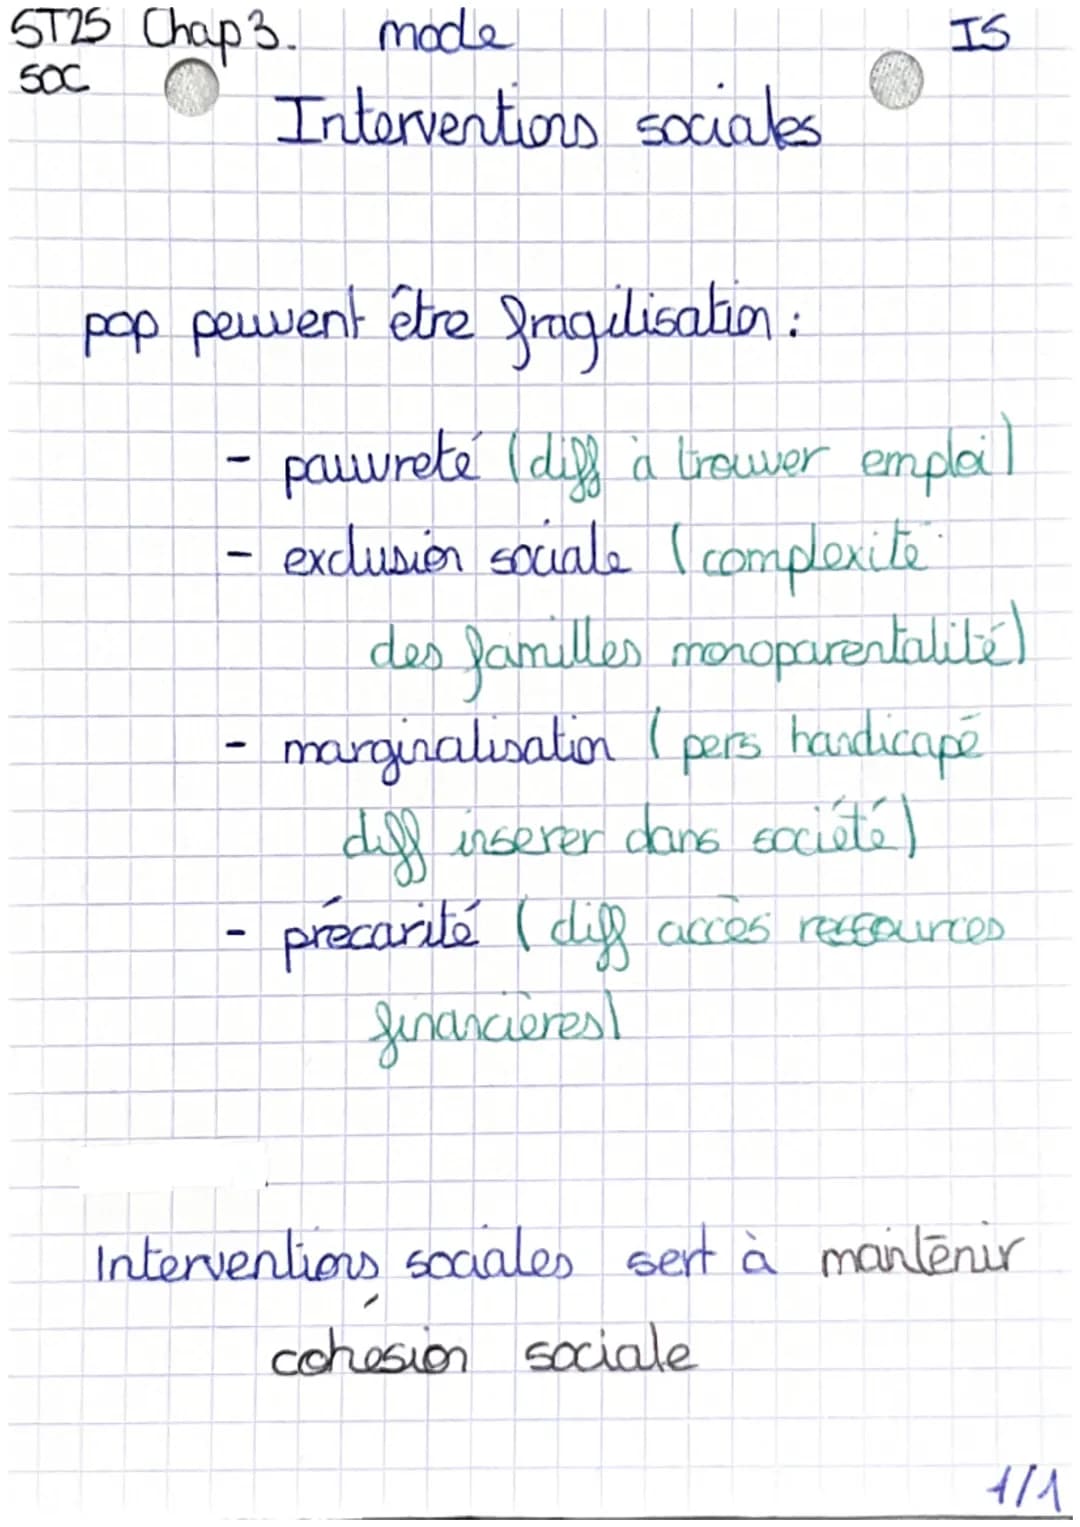 ST2S Chap 3. mode IS
SOC
Interventions sociales
pop peuvent être fragilisation :
- pauvreté (diff à trouver emploi)
- exclusion sociale (complexité
des familles monoparentalité)
- marginalisation (pers handicapé
diff inserer dans société)
- précarité (diff accès ressources
financières)
Interventions sociales sert à maintenir
cohésion sociale
1/1